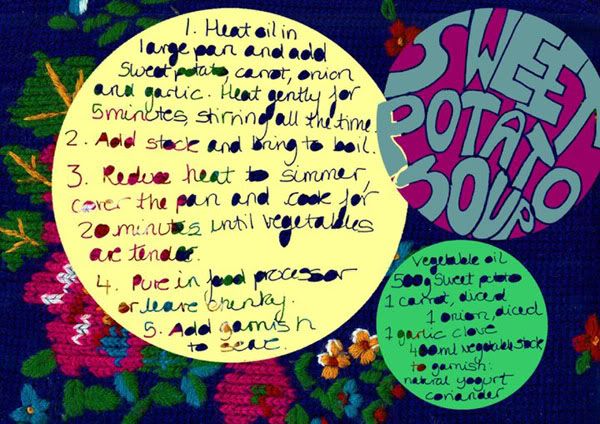 1. Heat oil in
large pan and add
sweet potato, carrot, onion
and garlic. Heat gently for
5 minutes, stirring all the time.
2. Add stock and bring to boil.
3. Reduce heat to simmer,
cover the pan and cook for
20 minutes until vegetables
are tender.
4. Pure in food processor
or leave chunky.
5. Add garnish
to serve.
SWEET
POTATO
SOUP
vegetable oil
500g sweet potato
1 carrot, diced
1 onion, diced
1 garlic clove
400ml vegetable stock
to garnish:
natural yogurt
coriander